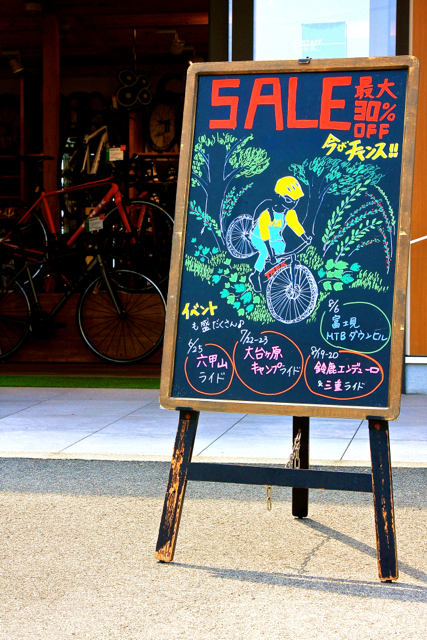 SALE
最大
30%
OFF
今がチャンス!!
イベント
も盛だくさん♪
8/6
富士見
MTBダウンヒル
6/25
六甲山
ライド
7/22-23
大台ヶ原
キャンプライド
8/19-20
鈴鹿エンデューロ
&三重ライド